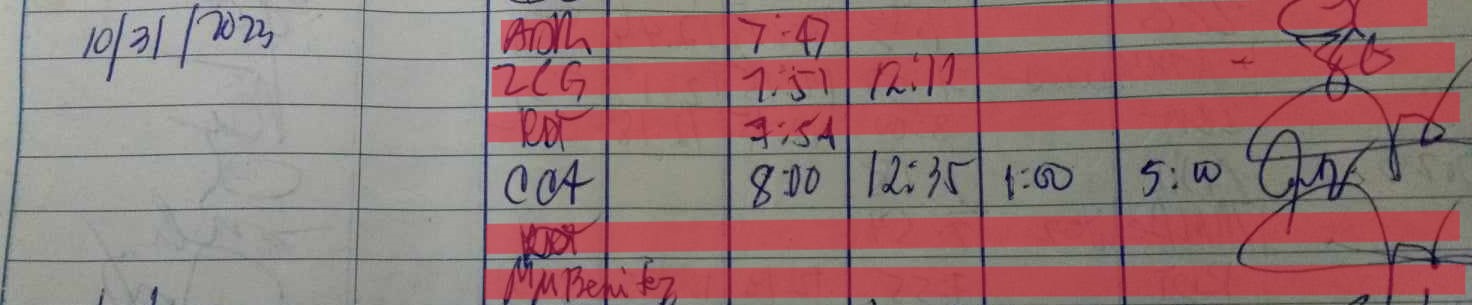 10/31/2023 ADR 7:47
ZCG 7:51 12:11
RDT 7:54
CCA 8:00 12:35 1:00 5:00
MM Benitez